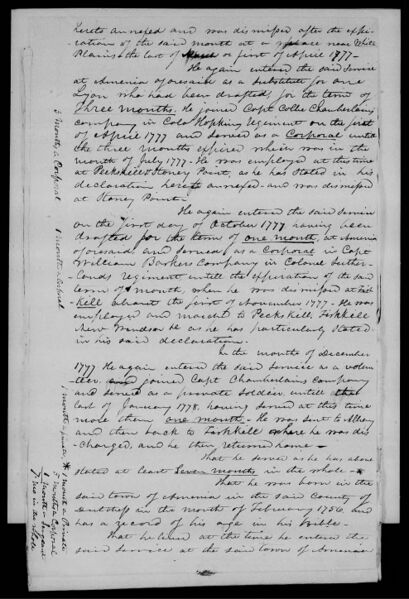 hereto annexed and was dismissed after the expi-
rations of the said month at a place near White
Plains the last of March or first of April 1777-
He again entered the said Service
at Armenia aforesaid as a Substitute for one
Lyon who had been drafted for the term of
Three months. He joined Capt Colbe Chamberlains
company in Colo Hopkins Regiment on the first
of April 1777 and served as a Corporal until
the three months expired which was in the
month of July 1777- He was employed at this time
at Peekskill & Stoney Point, as he has stated in his
declaration hereto annexed- and was dismissed
at Stoney Point-
He again entered the said Service
on the first day of October 1777 having been
drafted for the term of one month, at Armenia
aforesaid and served as a Corporal in Capt
William Barkers Company in Colonel Suther-
lands Regiment untill the expiration of the said
term of 1 month, when he was dismissed at Fish-
kill about the first of November 1777- He was
employed and marchd to Peekskill Fishkill
New Windsor &c as he has particularly stated
in his said declaration.
In the month of December
1777 He again entered the said service as a volun-
teer, and joined Capt Chamberlains Company
and served as a private soldier untill the
last of January 1778, having served at this time
more than one month- He was sent to Albany
and then back to Fishkill where he was dis-
charged, and he then returned home-
That he served as he has above
stated at least Seven months in the whole-
That he was born in the
said town of Armenia in the said County of
Dutchess in the month of February 1756, and
has a record of his age in his Bible-
That he lived at the time he entered the
said service at the said town of Armenia
3 months a Corporal
1 month a Corporal
1 month a private